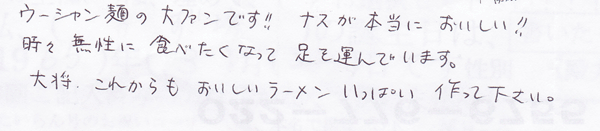 ウーシャン麺の大ファンです!! ナスが本当においしい!!
時々無性に食べたくなって足を運んでいます。
大将、これからもおいしいラーメンいっぱい作って下さい。